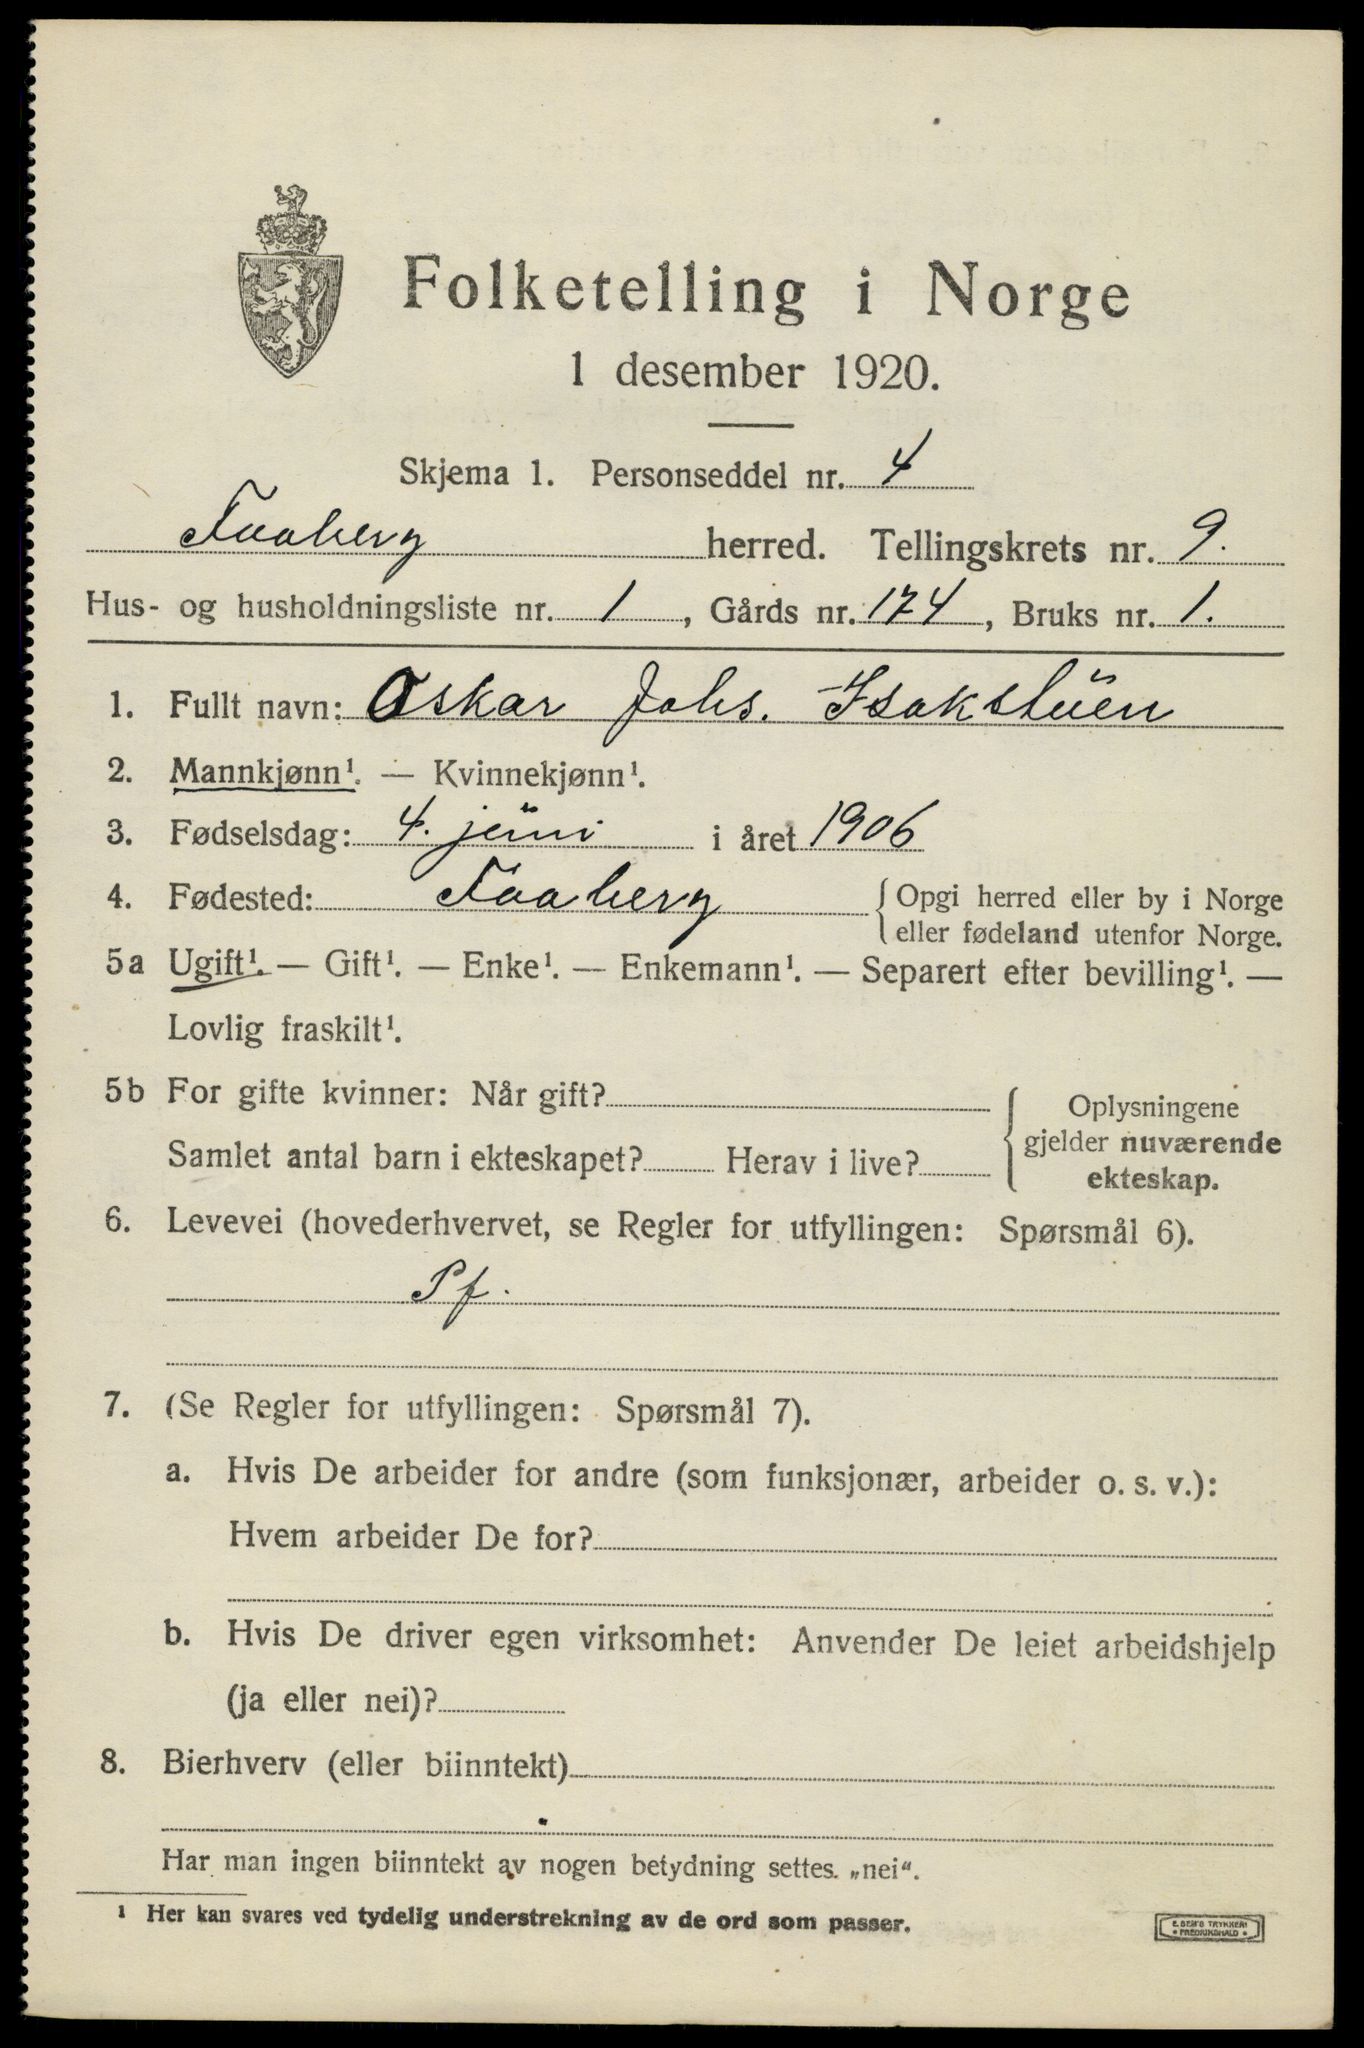 Folketelling i Norge
1 desember 1920.
Skjema 1. Personseddel nr. 4
Faaberg herred. Tellingskrets nr. 9.
Hus- og husholdningsliste nr. 1, Gårds nr. 174, Bruks nr. 1.
1. Fullt navn: Oskar Johs. Isakstuen
2. Mannkjønn¹. — Kvinnekjønn¹.
3. Fødselsdag: 4. juni i året 1906
4. Fødested: Faaberg { Opgi herred eller by i Norge
eller fødeland utenfor Norge.
5a Ugift¹. — Gift¹. — Enke¹. — Enkemann¹. — Separert efter bevilling¹. —
Lovlig fraskilt¹.
5b For gifte kvinner: Når gift?
Samlet antal barn i ekteskapet? Herav i live?
{ Oplysningene
gjelder nuværende
ekteskap.
6. Levevei (hovederhvervet, se Regler for utfyllingen: Spørsmål 6).
Pf.
7. (Se Regler for utfyllingen: Spørsmål 7).
a. Hvis De arbeider for andre (som funksjonær, arbeider o. s. v.):
Hvem arbeider De for?
b. Hvis De driver egen virksomhet: Anvender De leiet arbeidshjelp
(ja eller nei)?
8. Bierhverv (eller biinntekt)
Har man ingen biinntekt av nogen betydning settes „nei“.
¹ Her kan svares ved tydelig understrekning av de ord som passer.
E. SEM'S TRYKKERI
• FREDRIKSHALD •